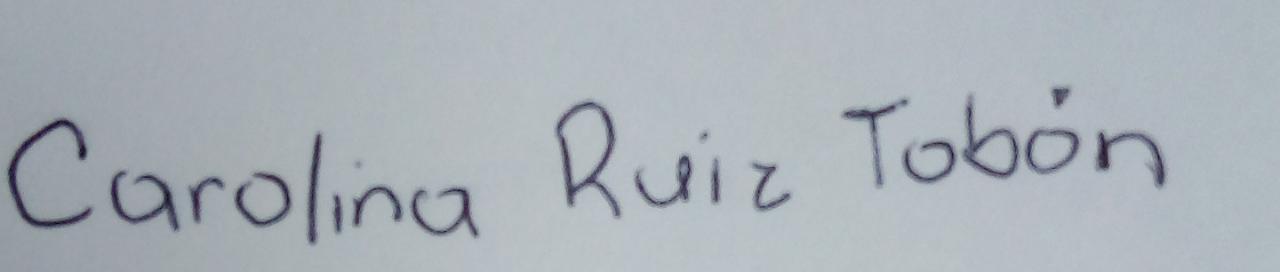 Carolina Ruiz Tobón